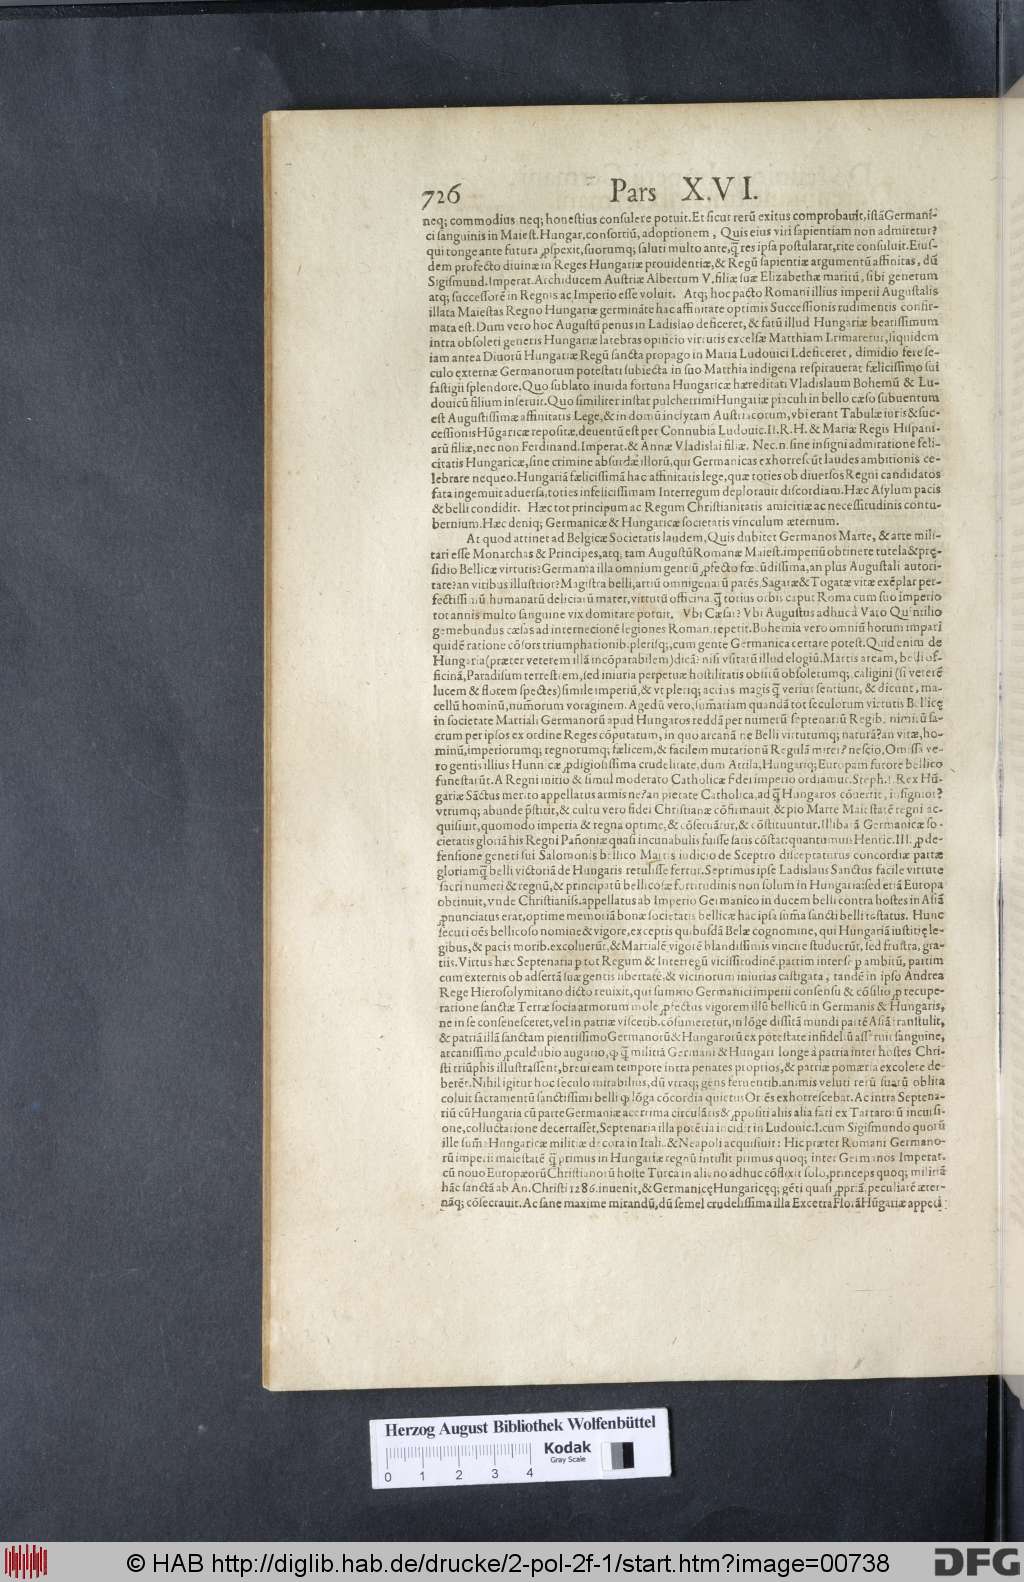 726 Pars X.VI.
neq; commodius neq; honeſtius conſulere potuit. Et ſicut rerũ exitus comprobauit, iſtã Germani-
ci ſanguinis in Maieſt. Hungar. conſortiũ, adoptionem, Quis eius viri ſapientiam non admiretur?
qui longe ante futura ꝓſpexit, ſuorumq; ſaluti multo ante, q̃ res ipſa poſtularat, rite conſuluit. Eiuſ-
dem profecto diuinæ in Reges Hungariæ prouidentiæ, & Regũ ſapientiæ argumentũ affinitas, dũ
Sigiſmund. Imperat. Archiducem Auſtriæ Albertum V. filiæ ſuæ Elizabethæ maritũ, ſibi generum
atq; ſucceſſorẽ in Regnis ac Imperio eſſe voluit. Atq; hoc pacto Romani illius imperii Auguſtalis
illata Maieſtas Regno Hungariæ germinãte hac affinitate optimis Succeſſionis rudimentis confir-
mata eſt. Dum vero hoc Auguſtũ penus in Ladislao deficeret, & fatũ illud Hungariæ beatiſſimum
intra obſoleti generis Hungariæ latebras opificio virtutis excelſæ Matthiam primaretur, ſiquidem
iam antea Diuorũ Hungariæ Regũ ſancta propago in Maria Ludouici I. deficeret, dimidio fere ſe-
culo externæ Germanorum poteſtati ſubiecta in ſuo Matthia indigena reſpirauerat fæliciſſimo ſui
faſtigii ſplendore. Quo ſublato inuida fortuna Hungaricæ hæreditati Vladislaum Bohemũ & Lu-
douicũ filium inſeruit. Quo ſimiliter inſtar pulcherrimi Hungariæ piaculi in bello cæſo ſubuentum
eſt Auguſtiſſimæ affinitatis Lege, & in domũ inclytam Auſtriacorum, vbi erant Tabulæ iuris & ſuc-
ceſſionis Hũgaricæ repoſitæ, deuentũ eſt per Connubia Ludouic. II. R. H. & Mariæ Regis Hiſpani-
arũ filiæ, nec non Ferdinand. Imperat. & Annæ Vladislai filiæ. Nec. n. ſine inſigni admiratione feli-
citatis Hungaricæ, ſine crimine abſurdæ illorũ, qui Germanicas exhorreſcũt laudes ambitionis ce-
lebrare nequeo. Hungariã fæliciſſimã hac affinitatis lege, quæ toties ob diuerſos Regni candidatos
fata ingemuit aduerſa, toties infeliciſſimam Interregum deplorauit diſcordiam. Hæc Aſylum pacis
& belli condidit. Hæc tot principum ac Regum Chriſtianitatis amicitiæ ac neceſſitudinis contu-
bernium. Hæc deniq; Germanicæ & Hungaricæ ſocietatis vinculum æternum.
At quod attinet ad Belgicæ Societatis laudem, Quis dubitet Germanos Marte, & arte mili-
tari eſſe Monarchas & Principes, atq; tam Auguſtũ Romanæ Maieſt. imperiũ obtinere tutela & prę-
ſidio Bellicæ virtutis? Germania illa omnium gentiũ ꝓfecto fœcũdiſſima, an plus Auguſtali autori-
tate? an viribus illuſtrior? Magiſtra belli, artiũ omnigenarũ parẽs, Sagatæ & Togatæ vitæ exẽplar per-
fectiſſimũ humanarũ deliciarũ mater, virtutũ officina. q̃ totius orbis caput Roma cum ſuo imperio
tot annis multo ſanguine vix domitare potuit. Vbi Cæſar? Vbi Auguſtus adhuc à Varo Quintilio
gemebundus cæſas ad internecionẽ legiones Roman. repetit. Bohemia vero omniũ horum impari
quidẽ ratione cõſors triumphationib. pleriſq;, cum gente Germanica certare poteſt. Quid enim de
Hungaria (præter veterem illã incõparabilem) dicã: niſi vſitatũ illud elogiũ. Martis aream, belli of-
ficinã, Paradiſum terreſtrem, ſed iniuria perpetuæ hoſtilitatis obſitũ obſoletumq; caligini (ſi veterẽ
lucem & florem ſpectes) ſimile imperiũ, & vt pleriq; ac ius magis q̃ verius ſentiunt, & dicunt, ma-
cellũ hominũ, numorum voraginem. Agedũ vero, ſum̃atiam quandã tot ſeculorum virtutis Bellicę
in ſocietate Martiali Germanorũ apud Hungaros reddã per numerũ ſeptenariũ Regib. nimirũ ſa-
crum per ipſos ex ordine Reges cõputatum, in quo arcanã ne Belli virtutumq; naturã? an vitæ, ho-
minũ, imperiorumq; regnorumq; fælicem, & facilem mutationũ Regulã mirer? neſcio. Omiſſa ve-
ro gentis illius Hunnicæ ꝓdigioſiſſima crudelitate, dum Attila, Hungariq; Europam furore bellico
funeſtarũt. A Regni initio & ſimul moderato Catholicæ fidei imperio ordiamur. Steph. I. Rex Hũ-
gariæ Sãctus merito appellatus armis ne? an pietate Catholica, ad q̃ Hungaros cõuertit, inſignior?
vtrumq; abunde p̃ſtitit, & cultu vero fidei Chriſtianæ cõfirmauit, & pio Marte Maieſtatẽ regni ac-
quiſiuit, quomodo imperia & regna optime, & cõſeruãtur, & cõſtituuntur. Illibatã Germanicæ ſo-
cietatis gloriã his Regni Pañoniæ quaſi incunabulis fuiſſe ſatis cõſtat: quantumuis Henric. III. ꝓ de-
fenſione generi ſui Salomonis bellico Martis iudicio de Sceptro diſceptaturus concordiæ partæ
gloriamq̃ belli victoriã de Hungaris retuliſſe fertur. Septimus ipſe Ladislaus Sanctus facile virtute
ſacri numeri & regnũ, & principatũ bellicoſæ fortitudinis non ſolum in Hungaria: ſed etiã Europa
obtinuit, vnde Chriſtianiſs. appellatus ab Imperio Germanico in ducem belli contra hoſtes in Aſiã
ꝓnunciatus erat, optime memoriã bonæ ſocietatis bellicæ hac ipſa ſum̃a ſancti belli teſtatus. Hunc
ſecuti oẽs bellicoſo nomine & vigore, exceptis quibuſdã Belæ cognomine, qui Hungariã iuſtitię le-
gibus, & pacis morib. excoluerũt, & Martialẽ vigorẽ blandiſſimis vincire ſtuduerũt, ſed fruſtra, gra-
tiis. Virtus hæc Septenaria p tot Regum & Interregũ viciſſitudinẽ. partim inter ſe p ambitũ, partim
cum externis ob adſertã ſuæ gentis libertatẽ, & vicinorum iniurias caſtigata, tandẽ in ipſo Andrea
Rege Hieroſolymitano dicto reuixit, qui ſummo Germanici imperii conſenſu & cõſilio ꝓ recupe-
ratione ſanctæ Terræ ſocia armorum mole ꝓfectus vigorem illũ bellicũ in Germanis & Hungaris,
ne in ſe conſeneſceret, vel in patriæ viſcerib. cõſumeretur, in lõge diſſitã mundi partẽ Aſiã tranſtulit,
& patriã illã ſanctam pientiſſimo Germanorũ & Hungarorũ ex poteſtate infidelũ aſſeruit ſanguine,
arcaniſſimo ꝓculdubio augurio, ꝙ q̃ militiã Germani & Hungari longe à patria inter hoſtes Chri-
ſti triũphis illuſtraſſent, breui eam tempore intra penates proprios, & patriæ pomœria excolere de-
berẽt. Nihil igitur hoc ſeculo mirabilius, dũ vtraq; gens feruentib. animis veluti rerũ ſuarũ oblita
coluit ſacramentũ ſanctiſſimi belli ꝙ lõga cõcordia quietus Orbẽs exhorreſcebat. Ac intra Septena-
riũ cũ Hungaria cũ parte Germaniæ acerrima circulãtis & ꝓpoſiti alis alia fati ex Tartarorũ incurſi-
one, colluctatione decertaſſet, Septenaria illa potẽtia incidit in Ludouic. I. cum Sigiſmundo quorũ
ille ſum̃æ Hungaricæ militiæ decora in Italia & Neapoli acquiſiuit: Hic præter Romani Germano-
rũ imperii maieſtatẽ q̃ primus in Hungariæ regnũ intulit primus quoq; inter Germanos Imperat.
cũ nouo Europæorũ Chriſtianorũ hoſte Turca in alieno adhuc cõflixit ſolo, princeps quoq; militiã
hãc ſanctã ab An. Chriſti 1286. inuenit, & Germanicę Hungaricęq; gẽti quaſi ꝓpriã, peculiarẽ æter-
nãq; cõſecrauit. Ac ſane maxime mirandũ, dũ ſemel crudeliſſima illa Excetra Florã Hũgariæ appeti
Herzog August Bibliothek Wolfenbüttel
Kodak
Gray Scale
0 1 2 3 4
© HAB http://diglib.hab.de/drucke/2-pol-2f-1/start.htm?image=00738
DFG